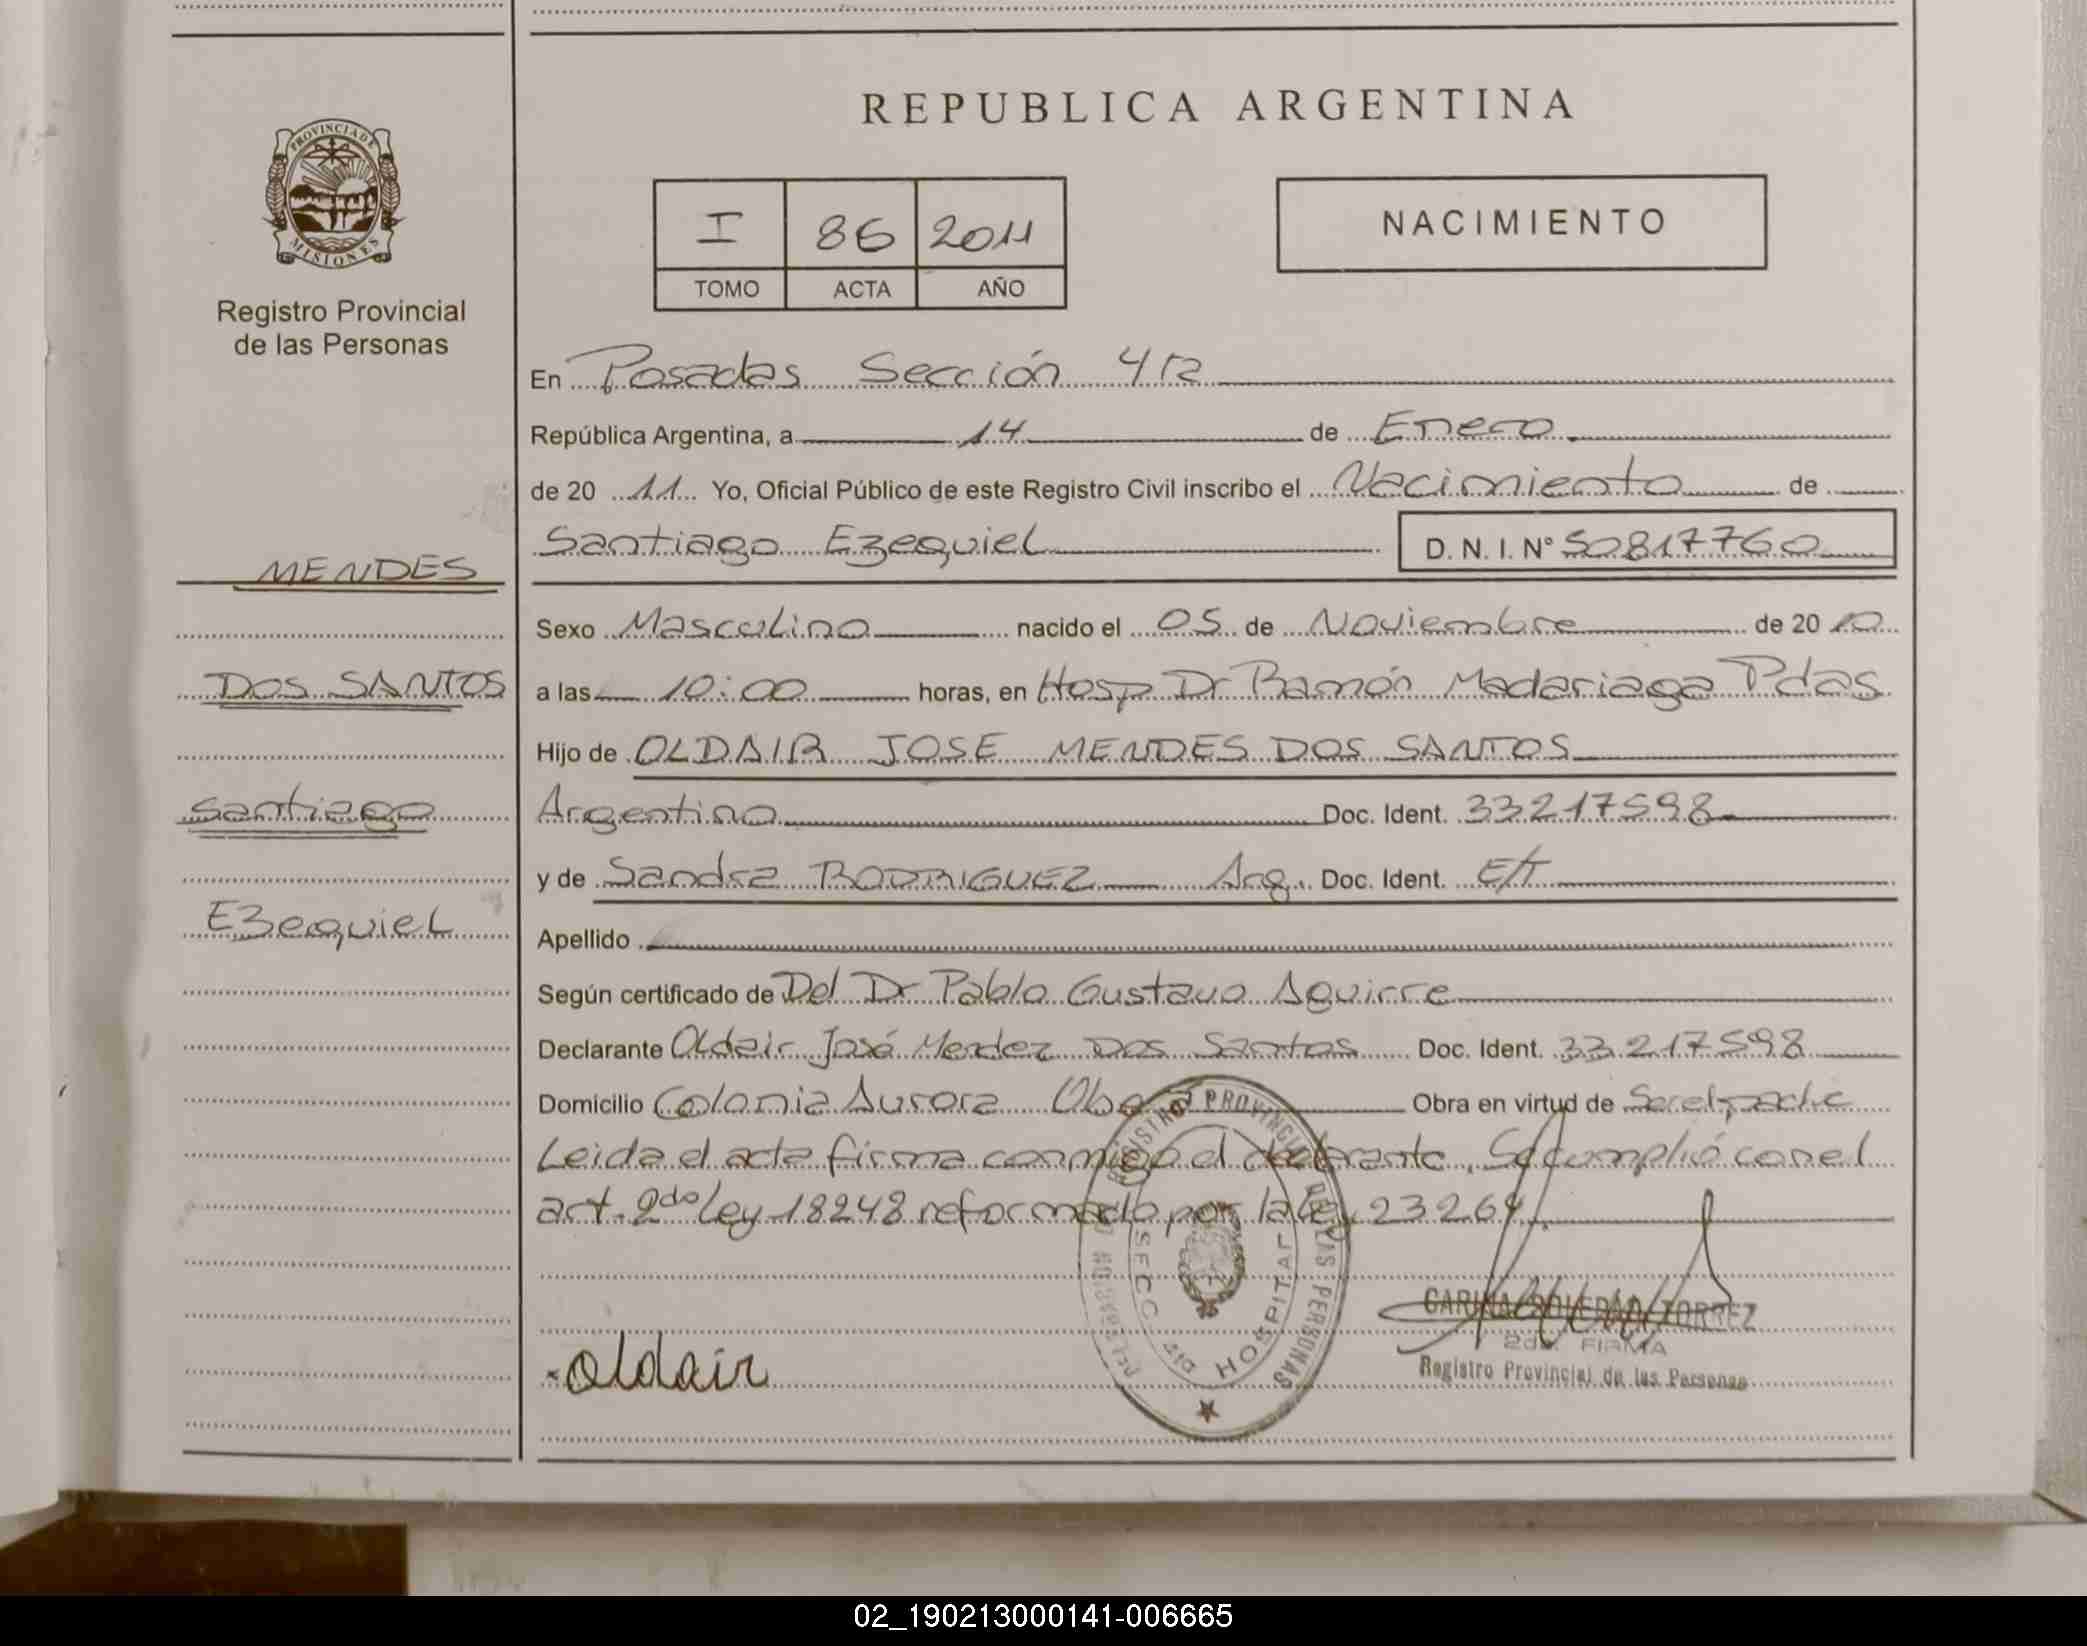 REPUBLICA ARGENTINA
PROVINCIA DE
MISIONES
Registro Provincial
de las Personas
I 86 2011
TOMO ACTA AÑO
NACIMIENTO
En Posadas Sección 4ta
República Argentina, a 14 de Enero
de 20 11 Yo, Oficial Público de este Registro Civil inscribo el Nacimiento de
Santiago Ezequiel D. N. I. N° 50817760
MENDES
DOS SANTOS
Santiago
Ezequiel
Sexo Masculino nacido el 05 de Noviembre de 20 10
a las 10:00 horas, en Hosp Dr Ramón Madariaga Pdas
Hijo de OLDAIR JOSE MENDES DOS SANTOS
Argentino Doc. Ident. 33217598
y de Sandra RODRIGUEZ Arg. Doc. Ident. E/T
Apellido
Según certificado de Del Dr Pablo Gustavo Aguirre
Declarante Oldair José Mendez Dos Santos Doc. Ident. 33217598
Domicilio Colonia Aurora Oberá Obra en virtud de
Leida el acta firma conmigo el declarante, Se cumplió con el
art. 2do Ley 18248 reformado por la Ley 23264.
REGISTRO PROVINCIAL DE LAS PERSONAS
HOSPITAL
CARINA SOLEDAD TORREZ
2da. FIRMA
Registro Provincial de las Personas
oldair
02_190213000141-006665